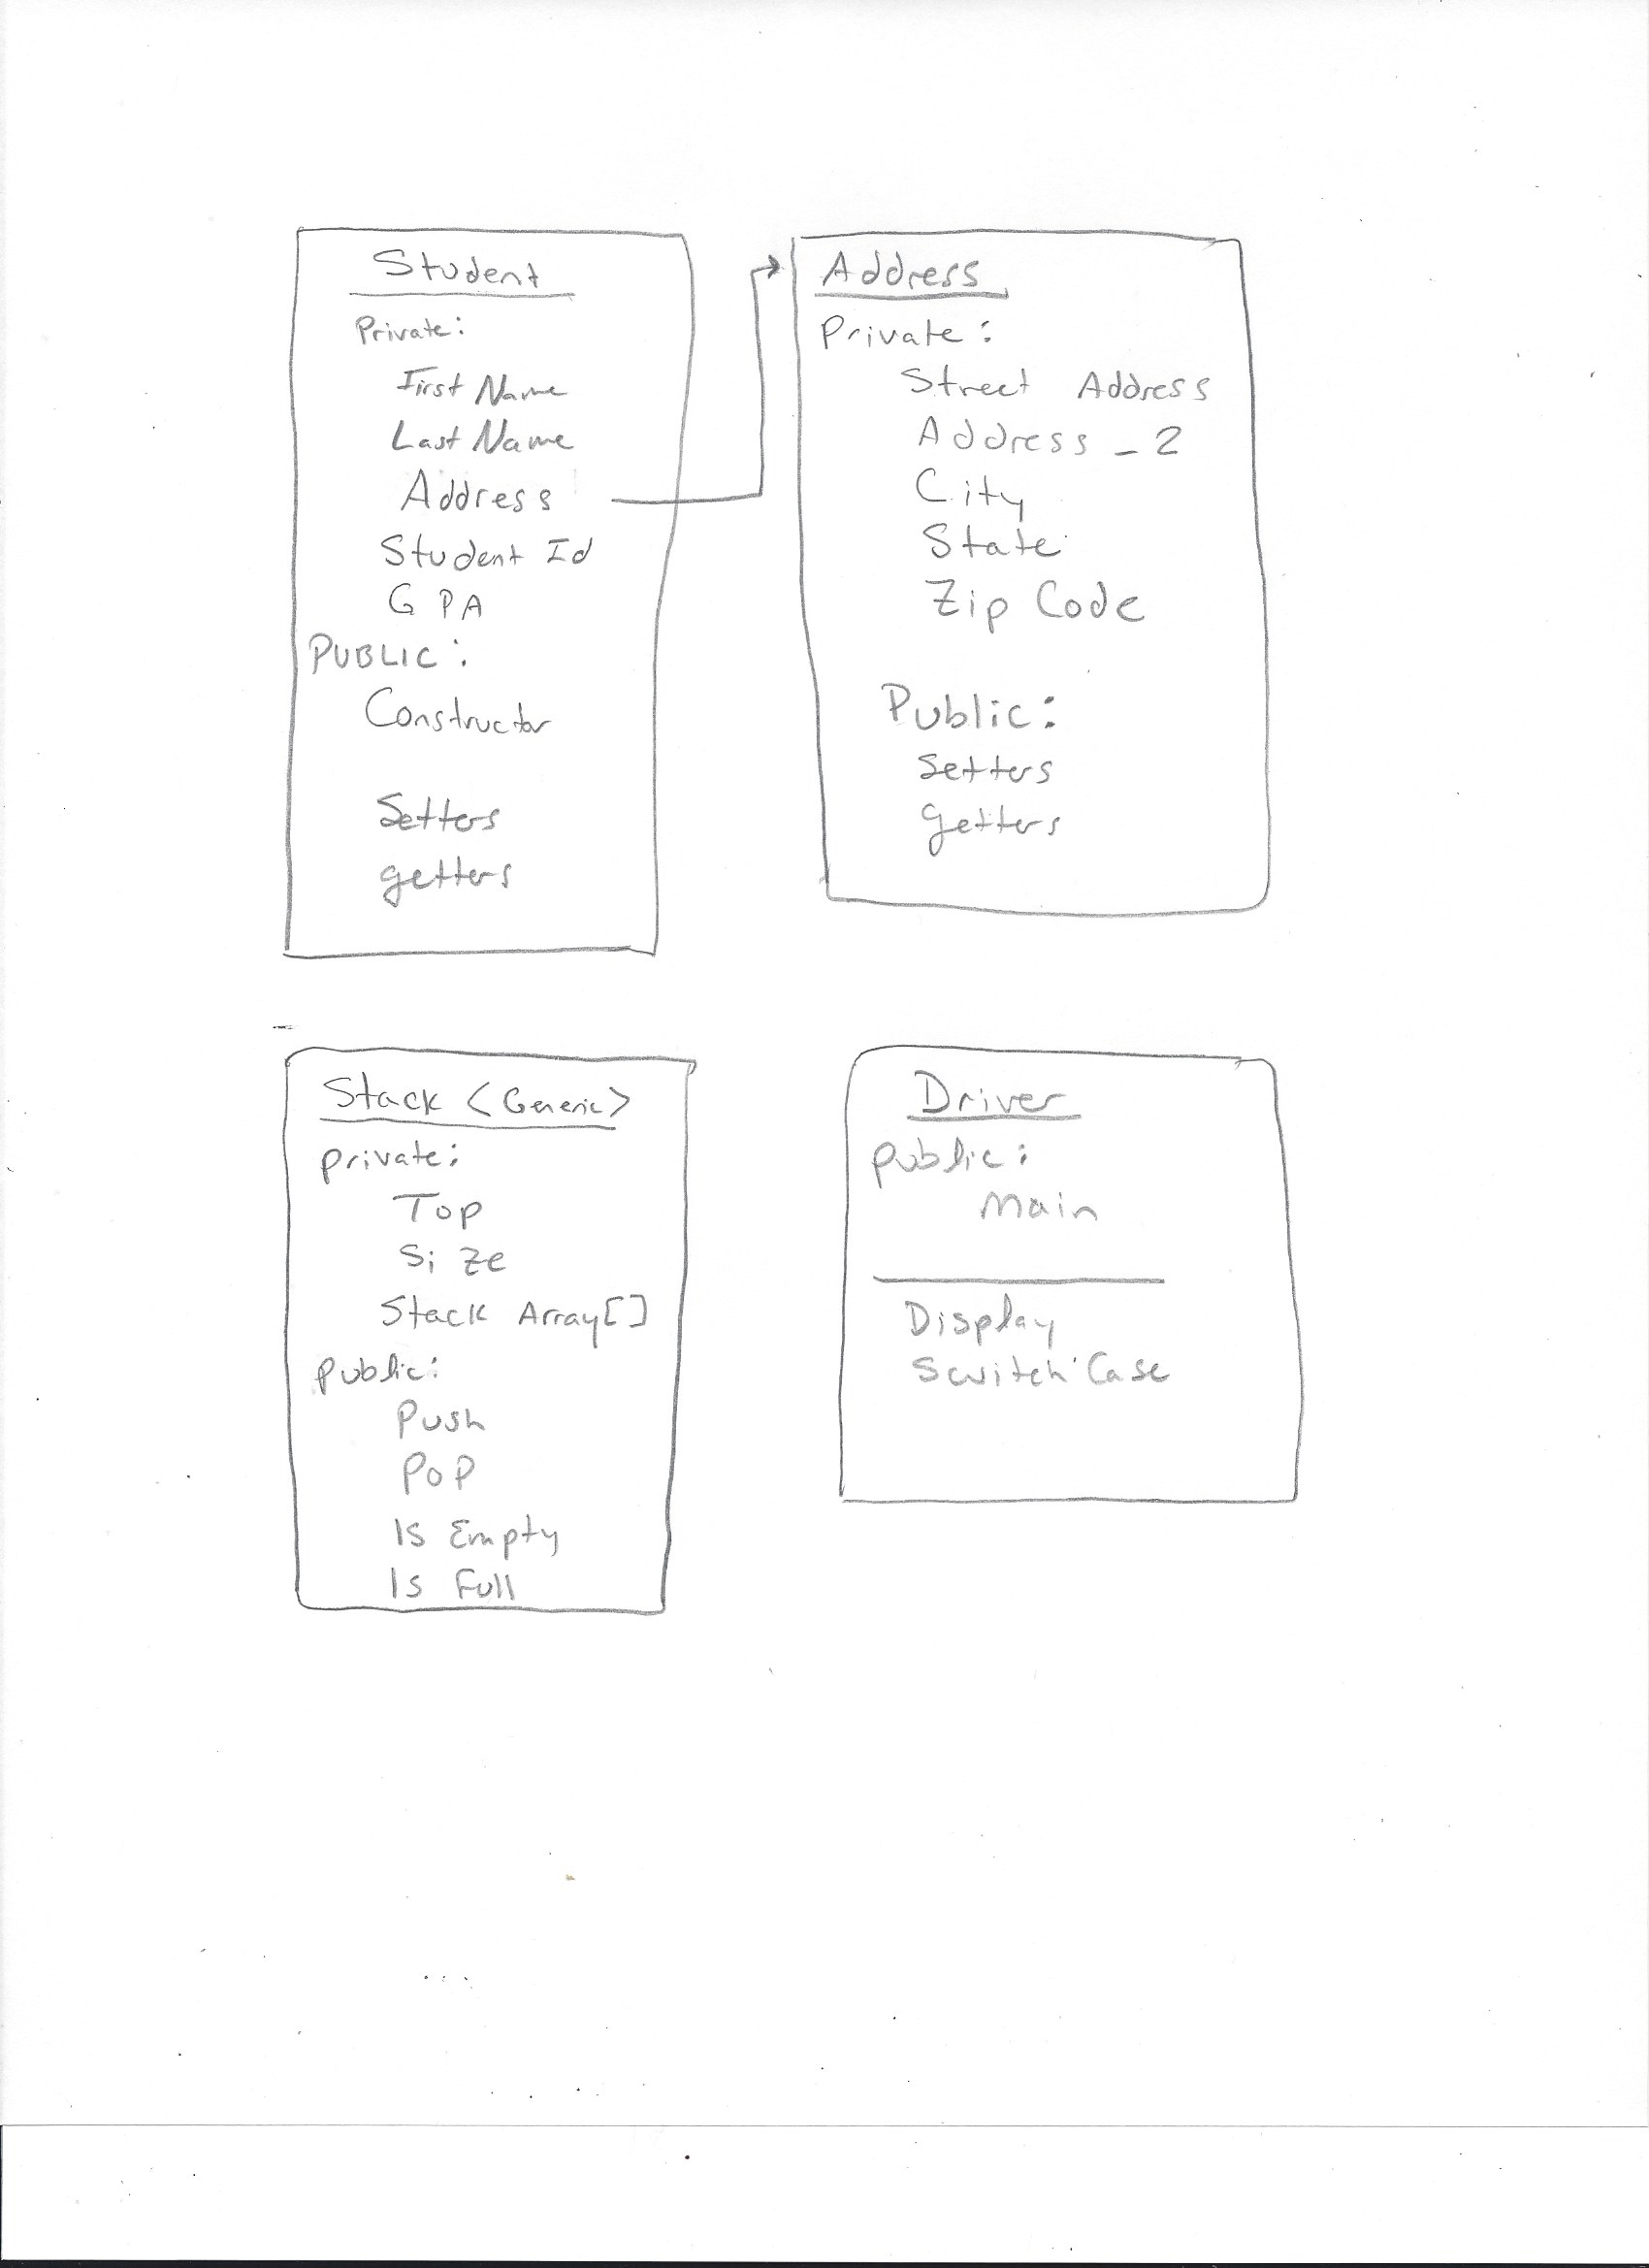 Student
Private:
First Name
Last Name
Address
Student Id
GPA
PUBLIC:
Constructor
Setters
getters
Address
Private:
Street Address
Address_2
City
State
Zip Code
Public:
Setters
getters
Stack <Generic>
private:
Top
Size
Stack Array[]
public:
Push
Pop
Is Empty
Is Full
Driver
public:
Main
Display
Switch Case